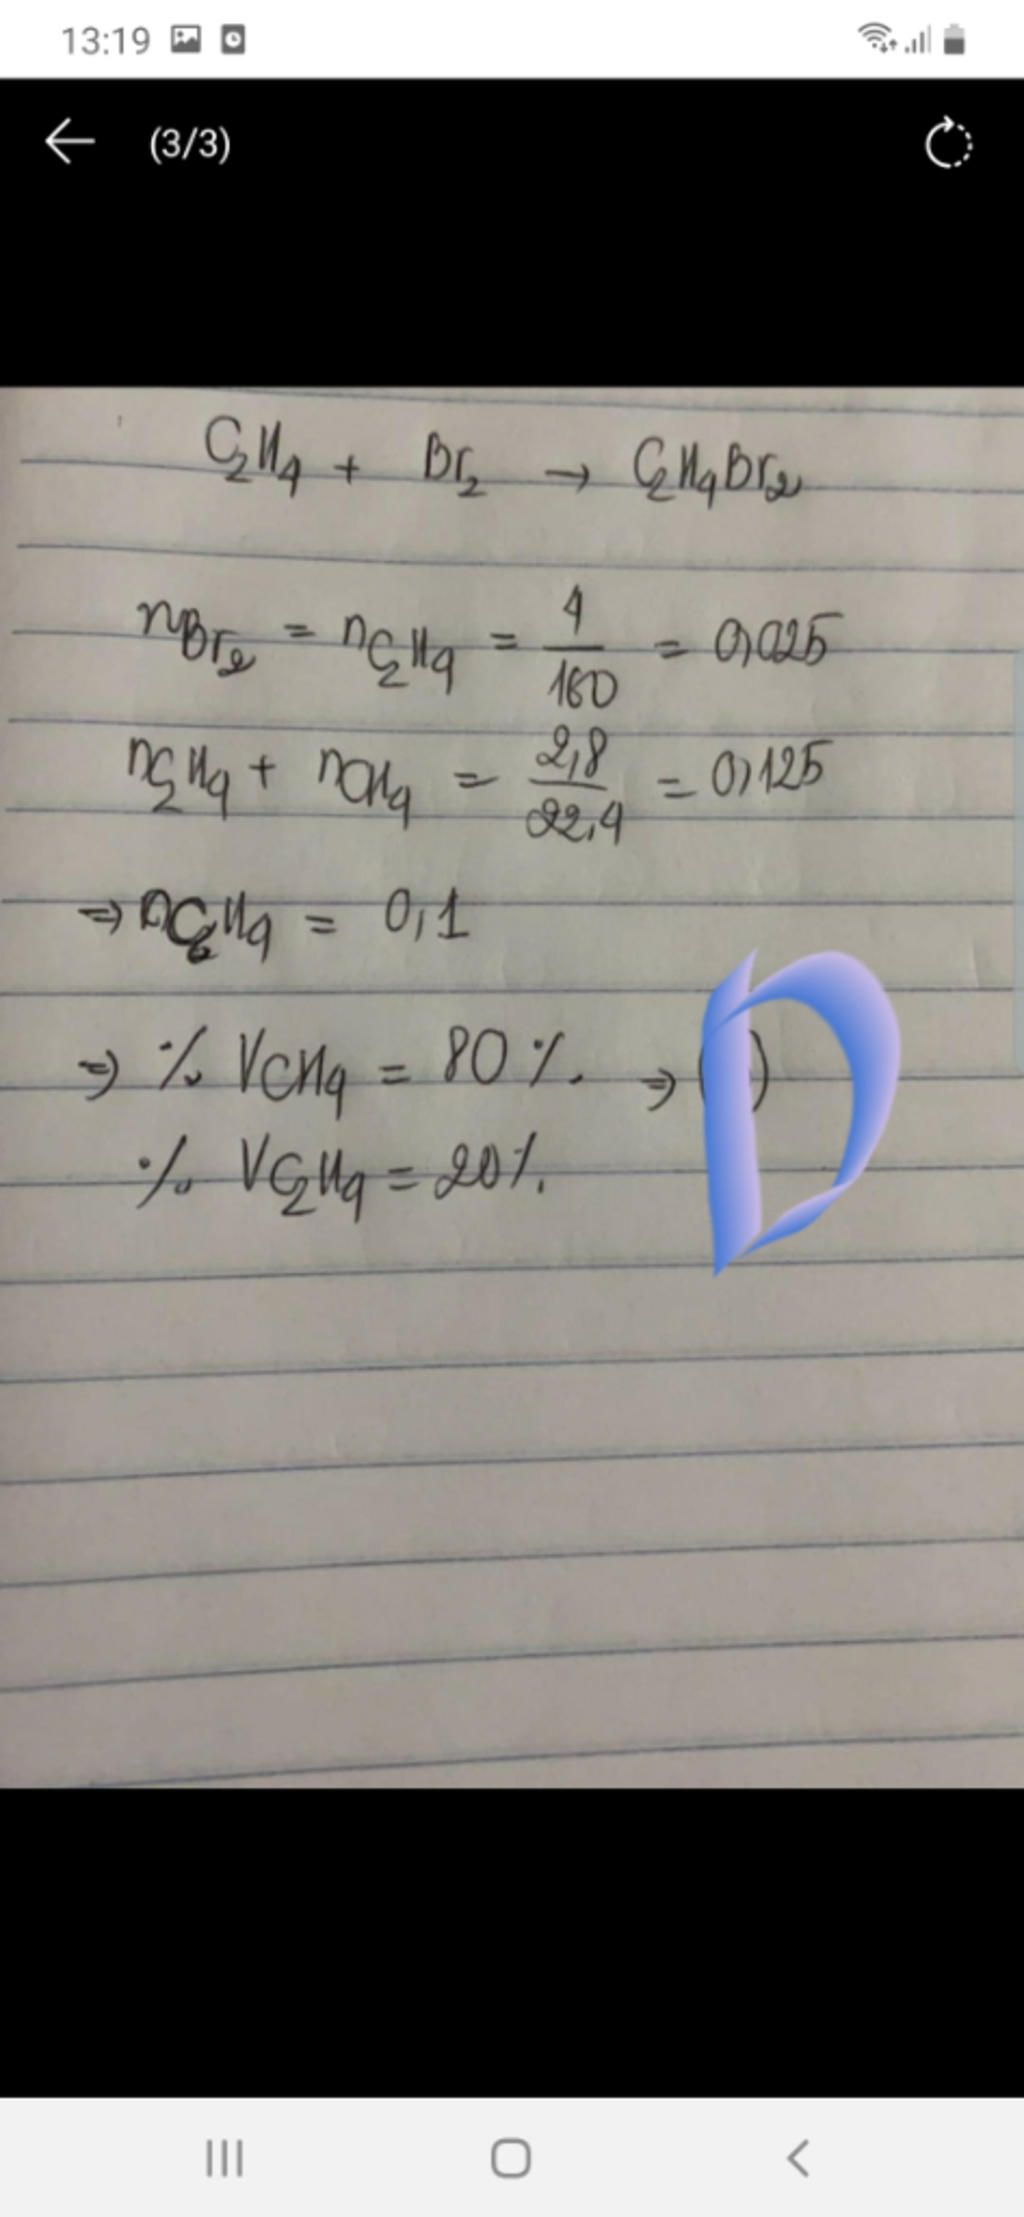 13:19
(3/3)
C2H4 + Br2 → C2H4Br2
nBr2 = nC2H4 = 4/160 = 0,025
nC2H4 + nCH4 = 2,8/22,4 = 0,125
⇒ nCH4 = 0,1
⇒ % VCH4 = 80 %. ⇒ D
% VC2H4 = 20%.